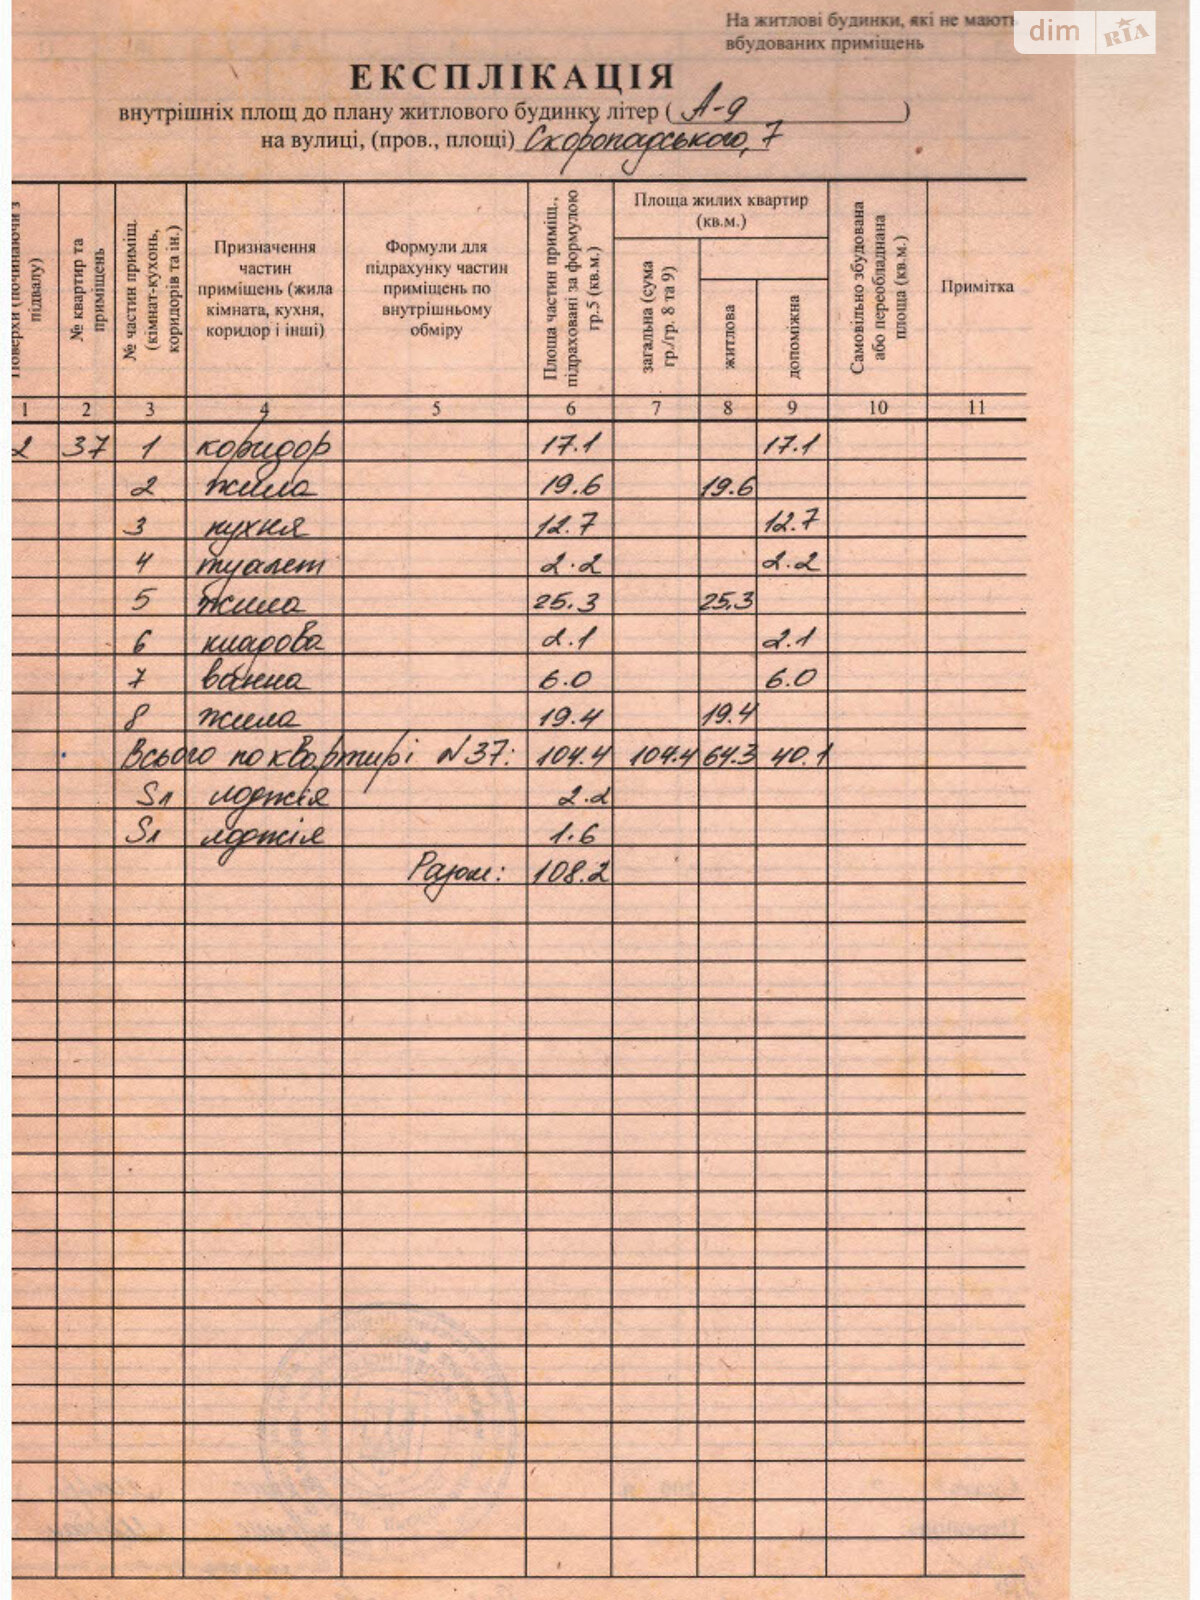 На житлові будинки, які не мають
вбудованих приміщень
dim RIA
ЕКСПЛІКАЦІЯ
внутрішніх площ до плану житлового будинку літер ( А-9 )
на вулиці, (пров., площі) Скоропадського, 7
Поверхи (починаючи з підвалу)
№ квартир та приміщень
№ частин приміщ. (кімнат-кухонь, коридорів та ін.)
Призначення частин приміщень (жила кімната, кухня, коридор і інші)
Формули для підрахунку частин приміщень по внутрішньому обміру
Площа частин приміщ., підраховані за формулою гр.5 (кв.м.)
Площа жилих квартир (кв.м.)
загальна (сума гр./гр. 8 та 9)
житлова
допоміжна
Самовільно збудована або переобладнана площа (кв.м.)
Примітка
1 2 3 4 5 6 7 8 9 10 11
2 37 1 коридор 17.1 17.1
2 жила 19.6 19.6
3 кухня 12.7 12.7
4 туалет 2.2 2.2
5 жила 25.3 25.3
6 кладова 2.1 2.1
7 ванна 6.0 6.0
8 жила 19.4 19.4
Всього по квартирі №37: 104.4 104.4 64.3 40.1
Sл лоджія 2.2
Sл лоджія 1.6
Разом: 108.2